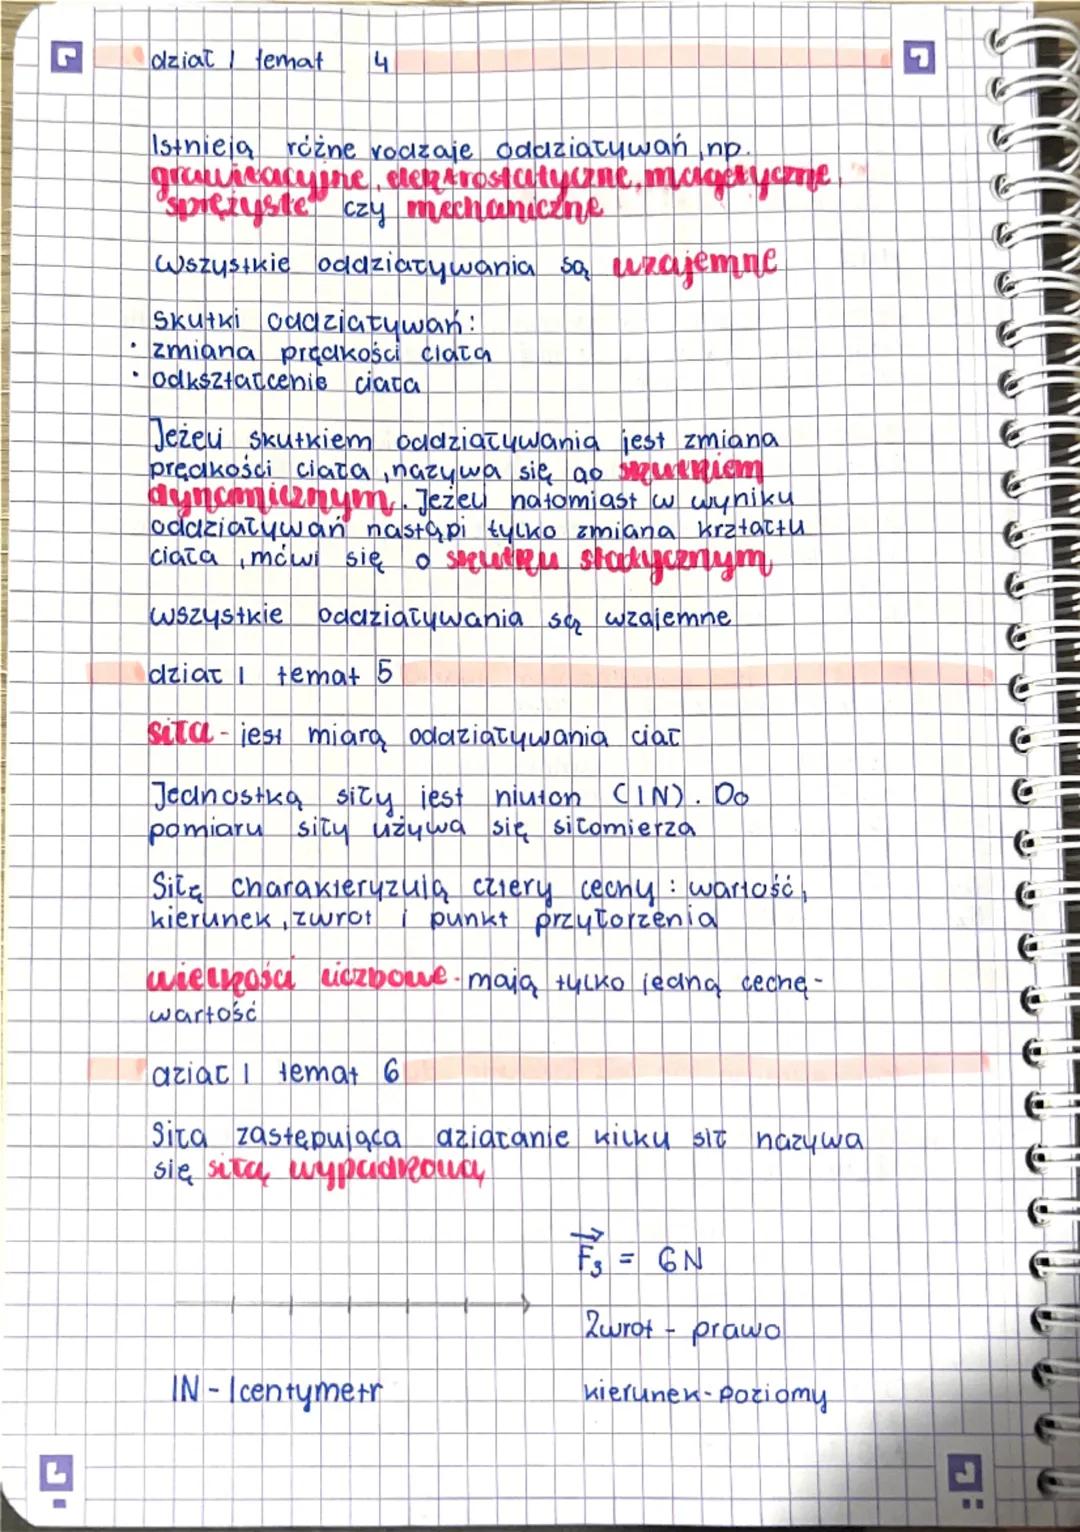 dział 1 temat 4
Istnieją różne rodzaje oddziaływań, np.
grawitacyjne, elektrostatyczne, magetyczne,
sprężyste czy mechaniczne
Wszystkie oddziaływania są wzajemne
Skutki oddziaływań:
• zmiana prędkości ciała
• odkształcenie ciała
Jeżeli skutkiem oddziaływania jest zmiana
prędkości ciała, nazywa się go skutkiem
dynamicznym. Jeżeli natomiast w wyniku
oddziaływań nastąpi tylko zmiana krztałtu
ciała, mówi się o skutku statycznym
Wszystkie oddziaływania są wzajemne
dział 1 temat 5
siła - jest miarą oddziaływania ciał
Jednostką siły jest niuton (1N). Do
pomiaru siły używa się siłomierza
Siłę charakteryzują cztery cechy: wartość,
kierunek, zwrot i punkt przyłożenia
wielkości liczbowe - mają tylko jedną cechę -
wartość
dział 1 temat 6
Siła zastępująca działanie kilku sił nazywa
się siłą wypadkową
F₃ = 6N
Zwrot - prawo
1N - 1centymetr
kierunek - poziomy